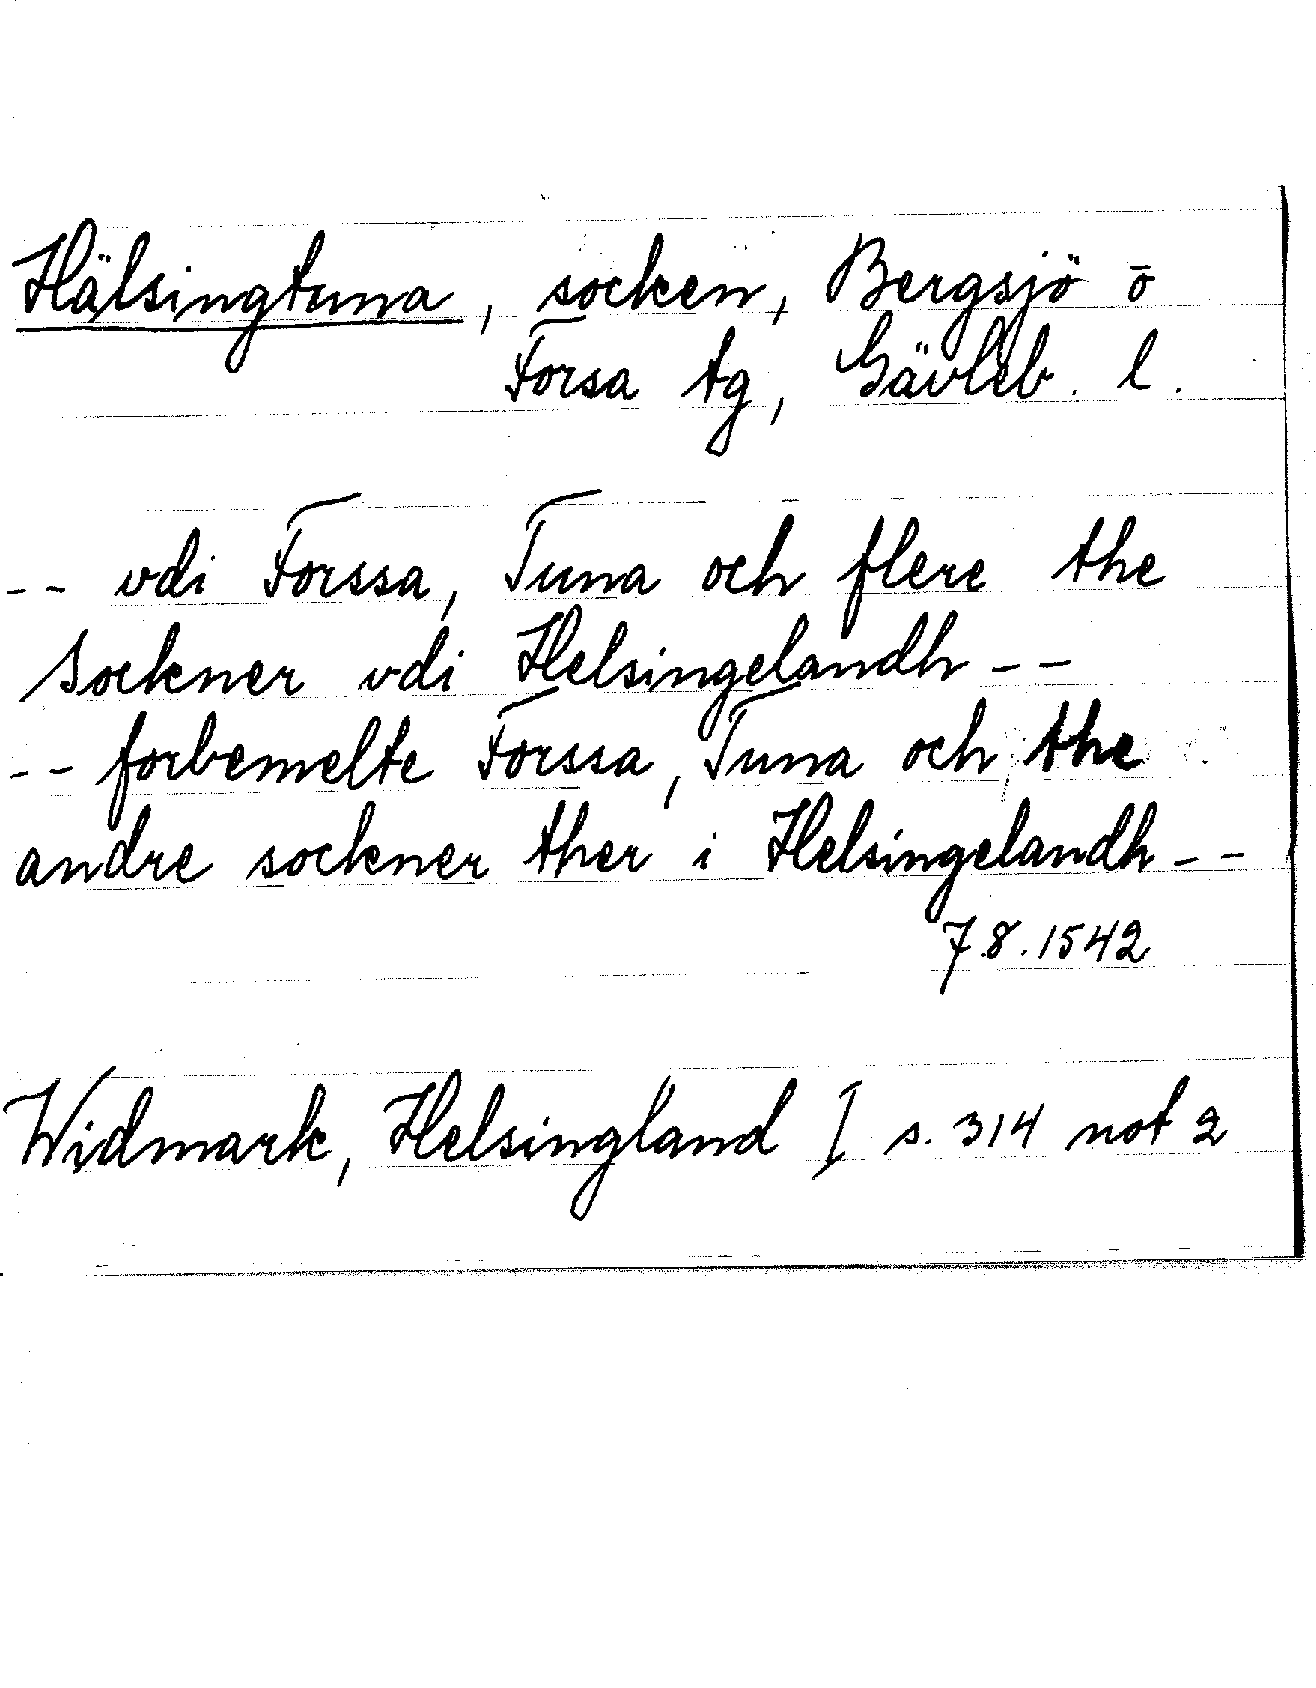 Hälsingtuna, socken, Bergsjö o
Forsa tg, Gävleb. l.
-- vdi Forssa, Tuna och flere the
Sockner vdi Helsingelandh --
-- forbemelte Forssa, Tuna och the
andre sockner ther i Helsingelandh --
7.8.1542
Widmark, Helsingland I s. 314 not 2